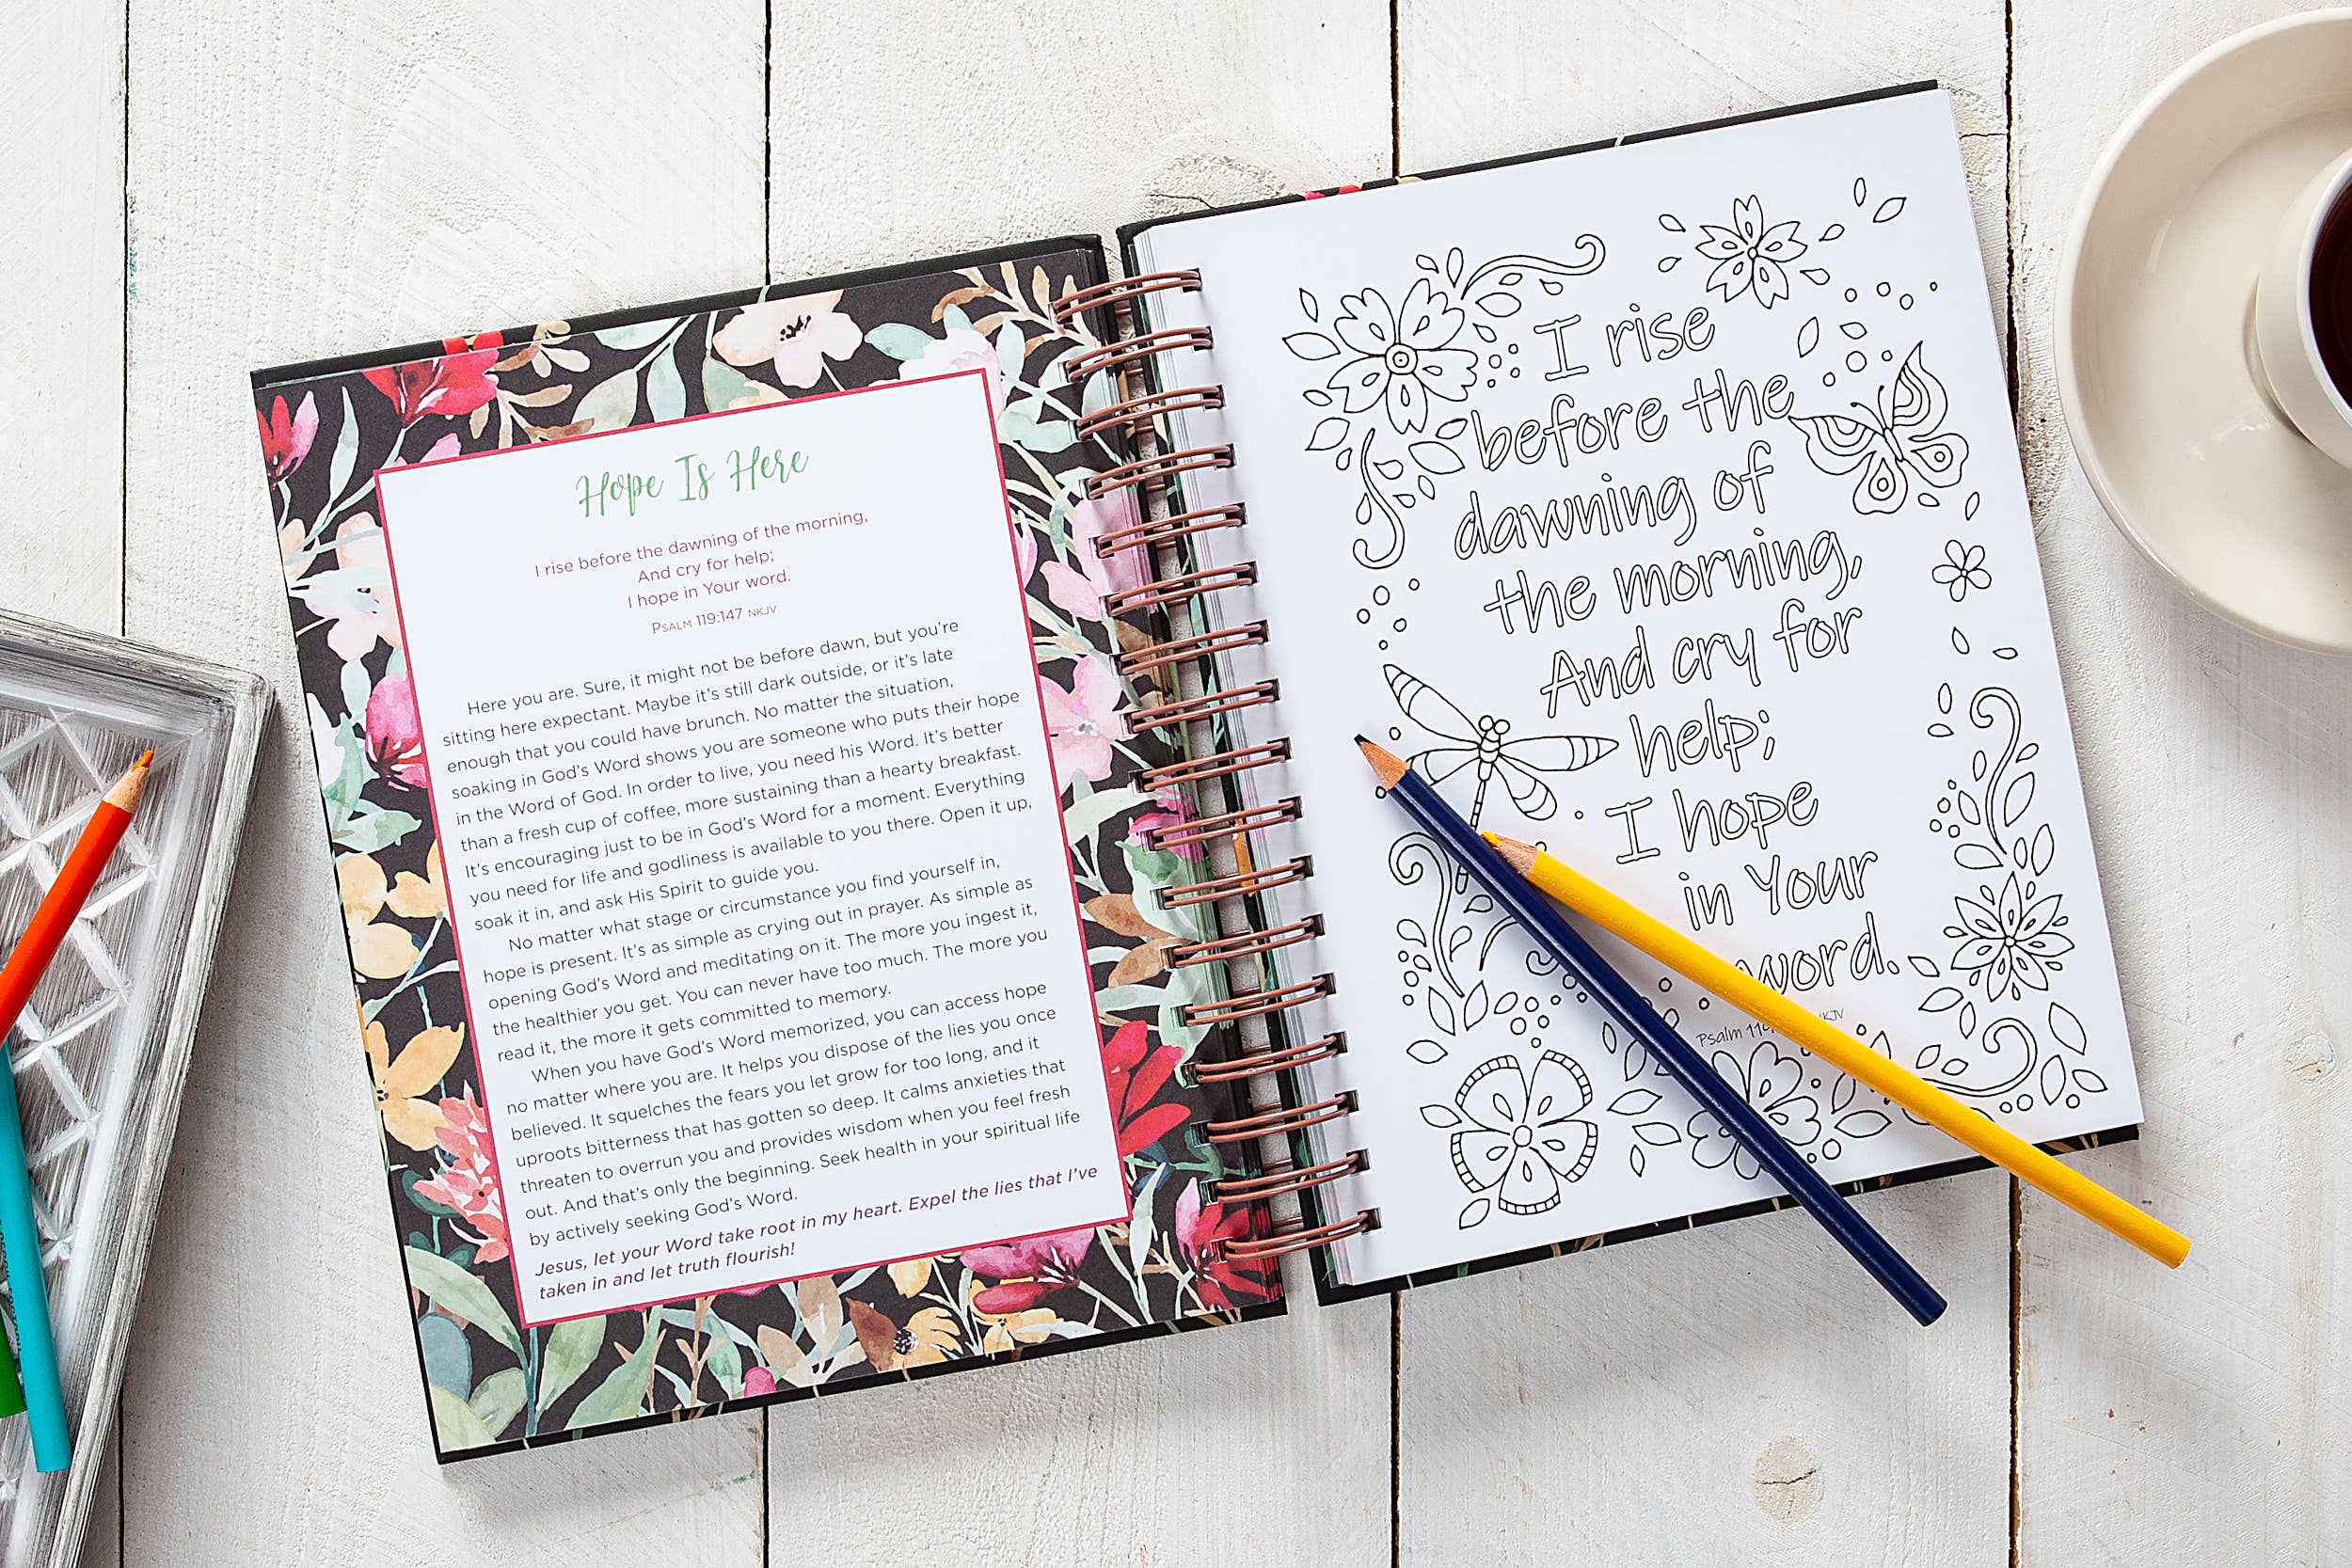 Hope Is Here
I rise before the dawning of the morning,
And cry for help;
I hope in Your word.
PSALM 119:147 NKJV
Here you are. Sure, it might not be before dawn, but you're
sitting here expectant. Maybe it's still dark outside, or it's late
enough that you could have brunch. No matter the situation,
soaking in God's Word shows you are someone who puts their hope
in the Word of God. In order to live, you need his Word. It's better
than a fresh cup of coffee, more sustaining than a hearty breakfast.
It's encouraging just to be in God's Word for a moment. Everything
you need for life and godliness is available to you there. Open it up,
soak it in, and ask His Spirit to guide you.
No matter what stage or circumstance you find yourself in,
hope is present. It's as simple as crying out in prayer. As simple as
opening God's Word and meditating on it. The more you ingest it,
the healthier you get. You can never have too much. The more you
read it, the more it gets committed to memory.
When you have God's Word memorized, you can access hope
no matter where you are. It helps you dispose of the lies you once
believed. It squelches the fears you let grow for too long, and it
uproots bitterness that has gotten so deep. It calms anxieties that
threaten to overrun you and provides wisdom when you feel fresh
out. And that's only the beginning. Seek health in your spiritual life
by actively seeking God's Word.
Jesus, let your Word take root in my heart. Expel the lies that I've
taken in and let truth flourish!
I rise
before the
dawning of
the morning,
And cry for
help;
I hope
in Your
word.
Psalm